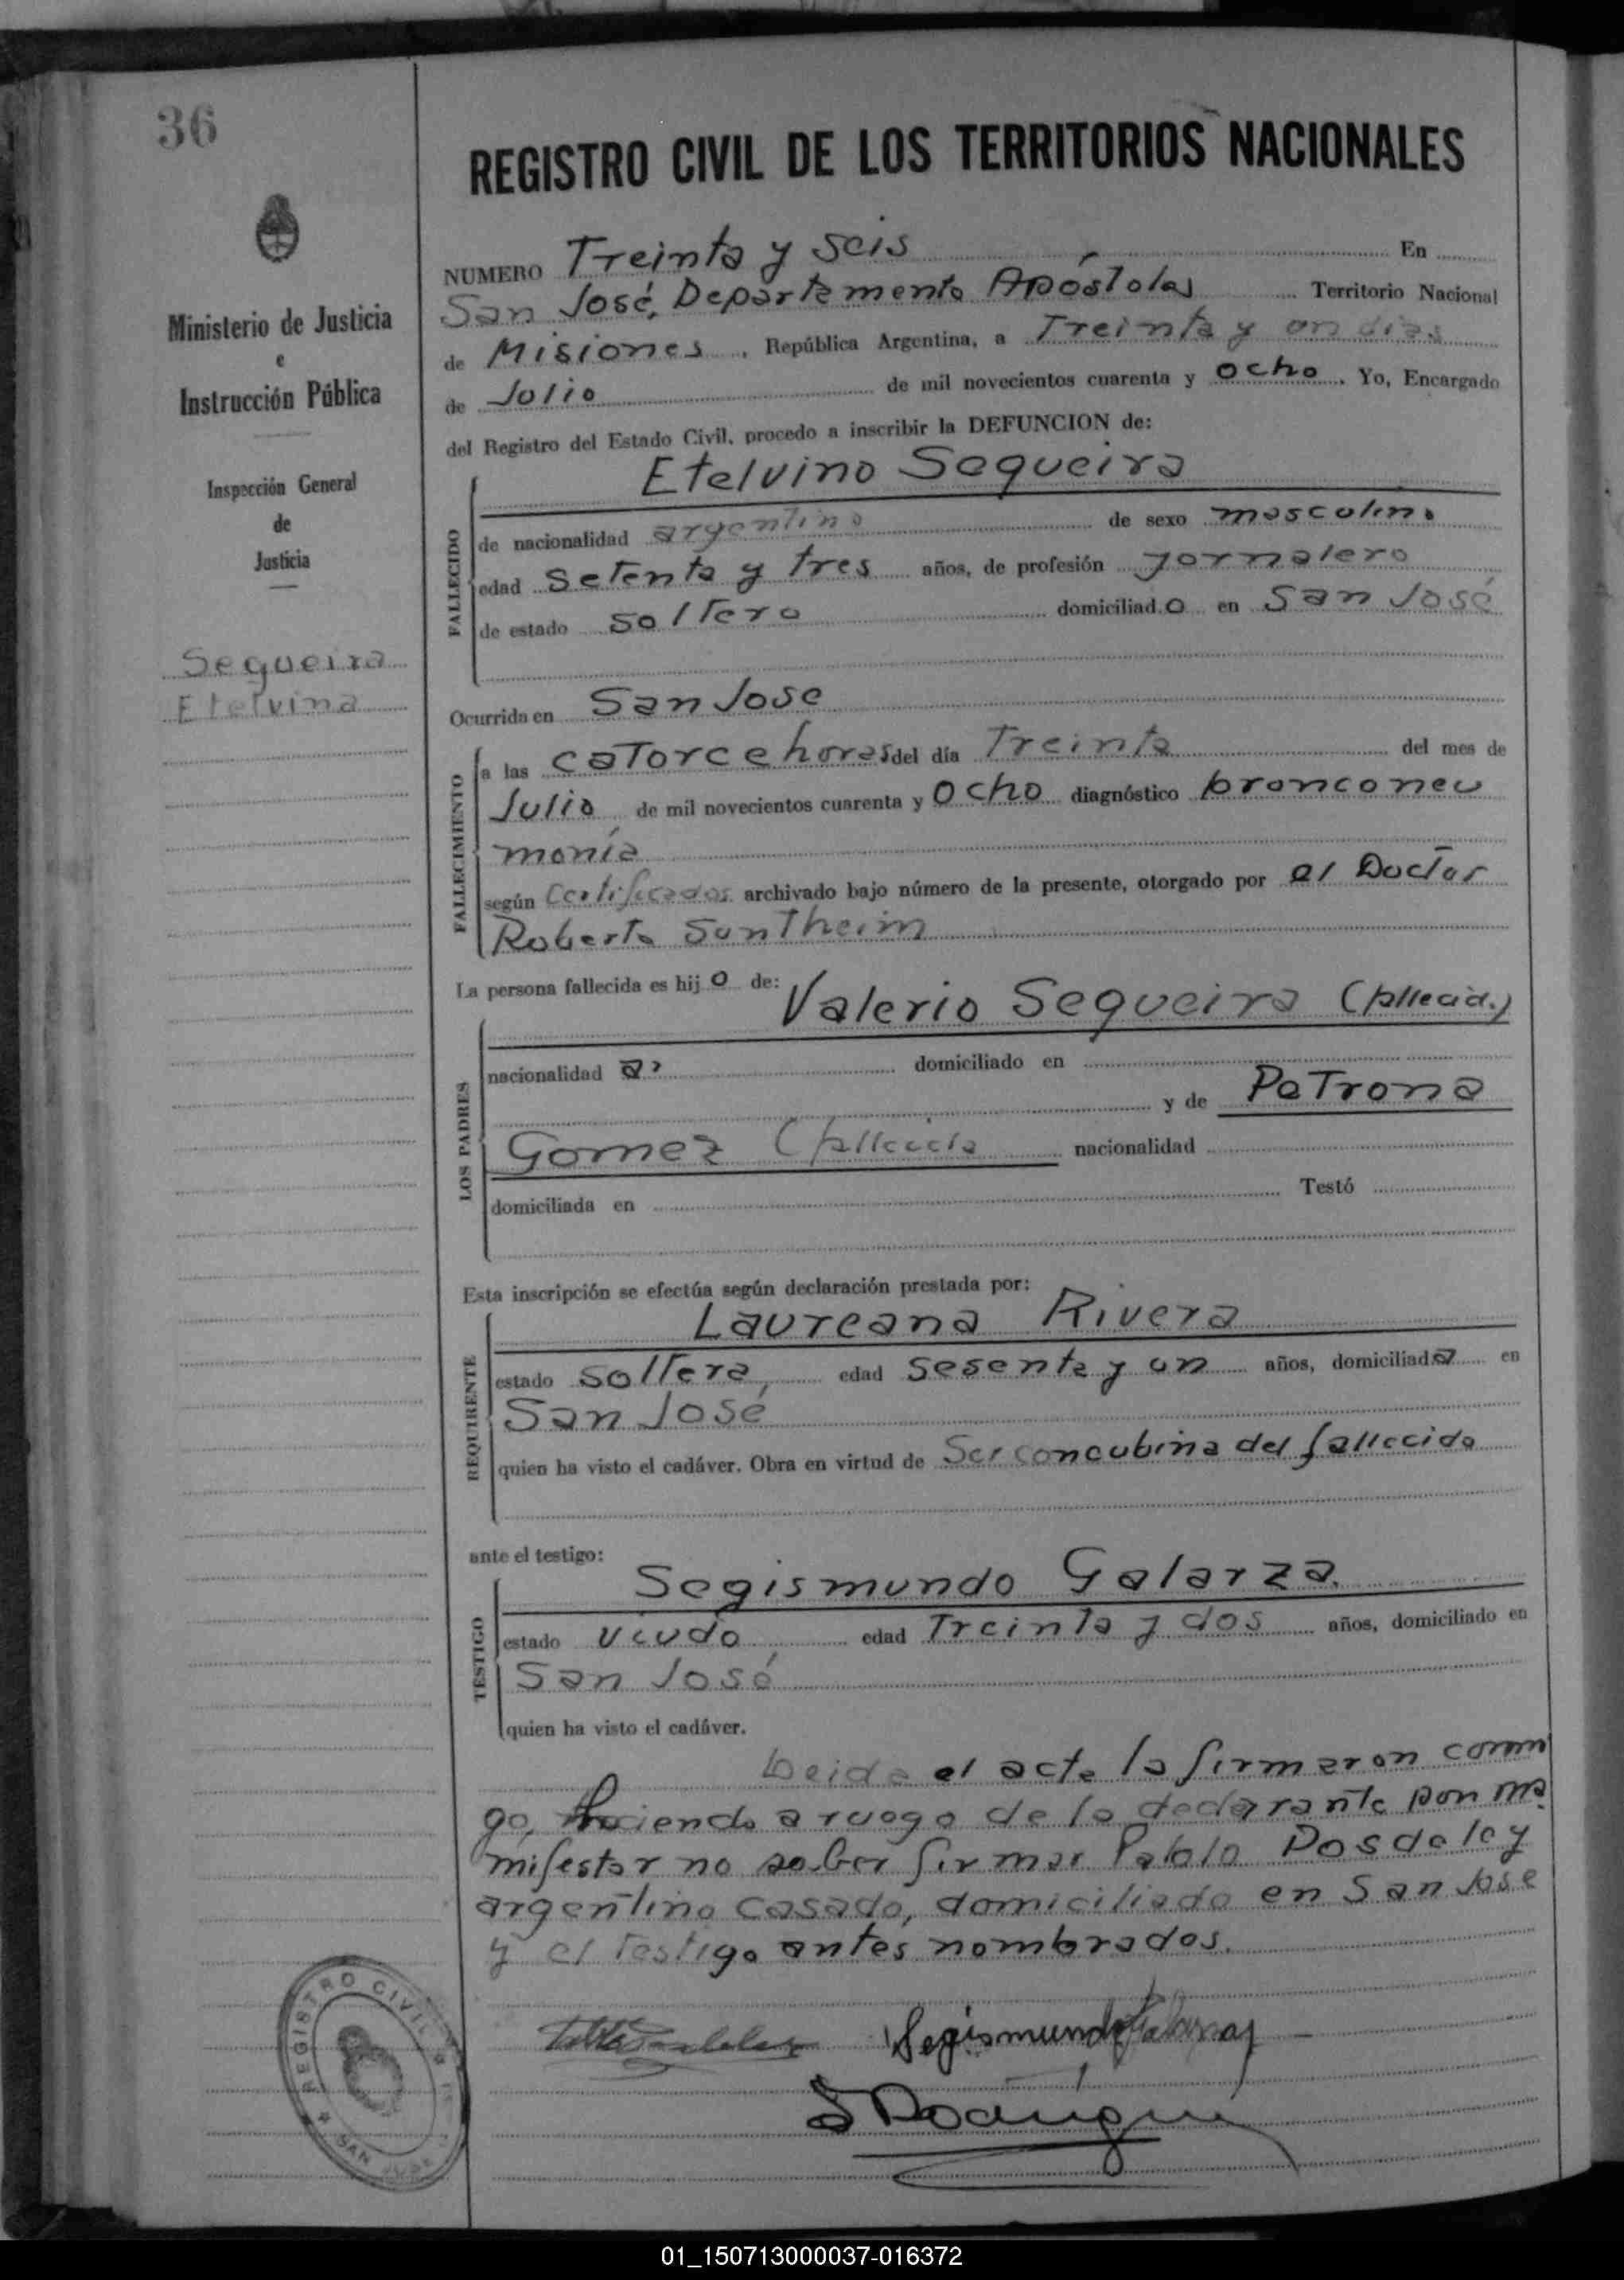 36
REGISTRO CIVIL DE LOS TERRITORIOS NACIONALES
Ministerio de Justicia
e
Instrucción Pública
Inspección General
de
Justicia
Sequeira
Etelvina
NUMERO Treinta y seis En
San José, Departamento Apóstoles Territorio Nacional
de Misiones, República Argentina, a Treinta y un dias
de Julio de mil novecientos cuarenta y ocho. Yo, Encargado
del Registro del Estado Civil, procedo a inscribir la DEFUNCION de:
Etelvino Sequeira
FALLECIDO
de nacionalidad argentino de sexo masculino
edad setenta y tres años, de profesión jornalero
de estado soltero domiciliado en San José
Ocurrida en San Jose
FALLECIMIENTO
a las catorce horas del día Treinta del mes de
Julio de mil novecientos cuarenta y ocho diagnóstico bronconeu
monía
según certificados archivado bajo número de la presente, otorgado por el Doctor
Roberto Suntheim
La persona fallecida es hijo de: Valerio Sequeira (fallecid.)
LOS PADRES
nacionalidad a domiciliado en
y de Petrona
Gomez (fallecida nacionalidad
domiciliada en Testó
Esta inscripción se efectúa según declaración prestada por:
Laureana Rivera
REQUIRENTE
estado soltera, edad sesenta y un años, domiciliada en
San José
quien ha visto el cadáver. Obra en virtud de Ser concubina del fallecido
ante el testigo:
Segismundo Galarza.
TESTIGO
estado viudo edad Treinta y dos años, domiciliado en
San José
quien ha visto el cadáver.
Leida el acta la firmaron conmi
go, haciendo a ruego de la declarante por ma
nifestar no saber firmar Pablo Posdeley
argentino casado, domiciliado en San José
y el testigo antes nombrados.
Segismundo Galarza
S Rodriguez
REGISTRO CIVIL
SAN JOSE
01_150713000037-016372